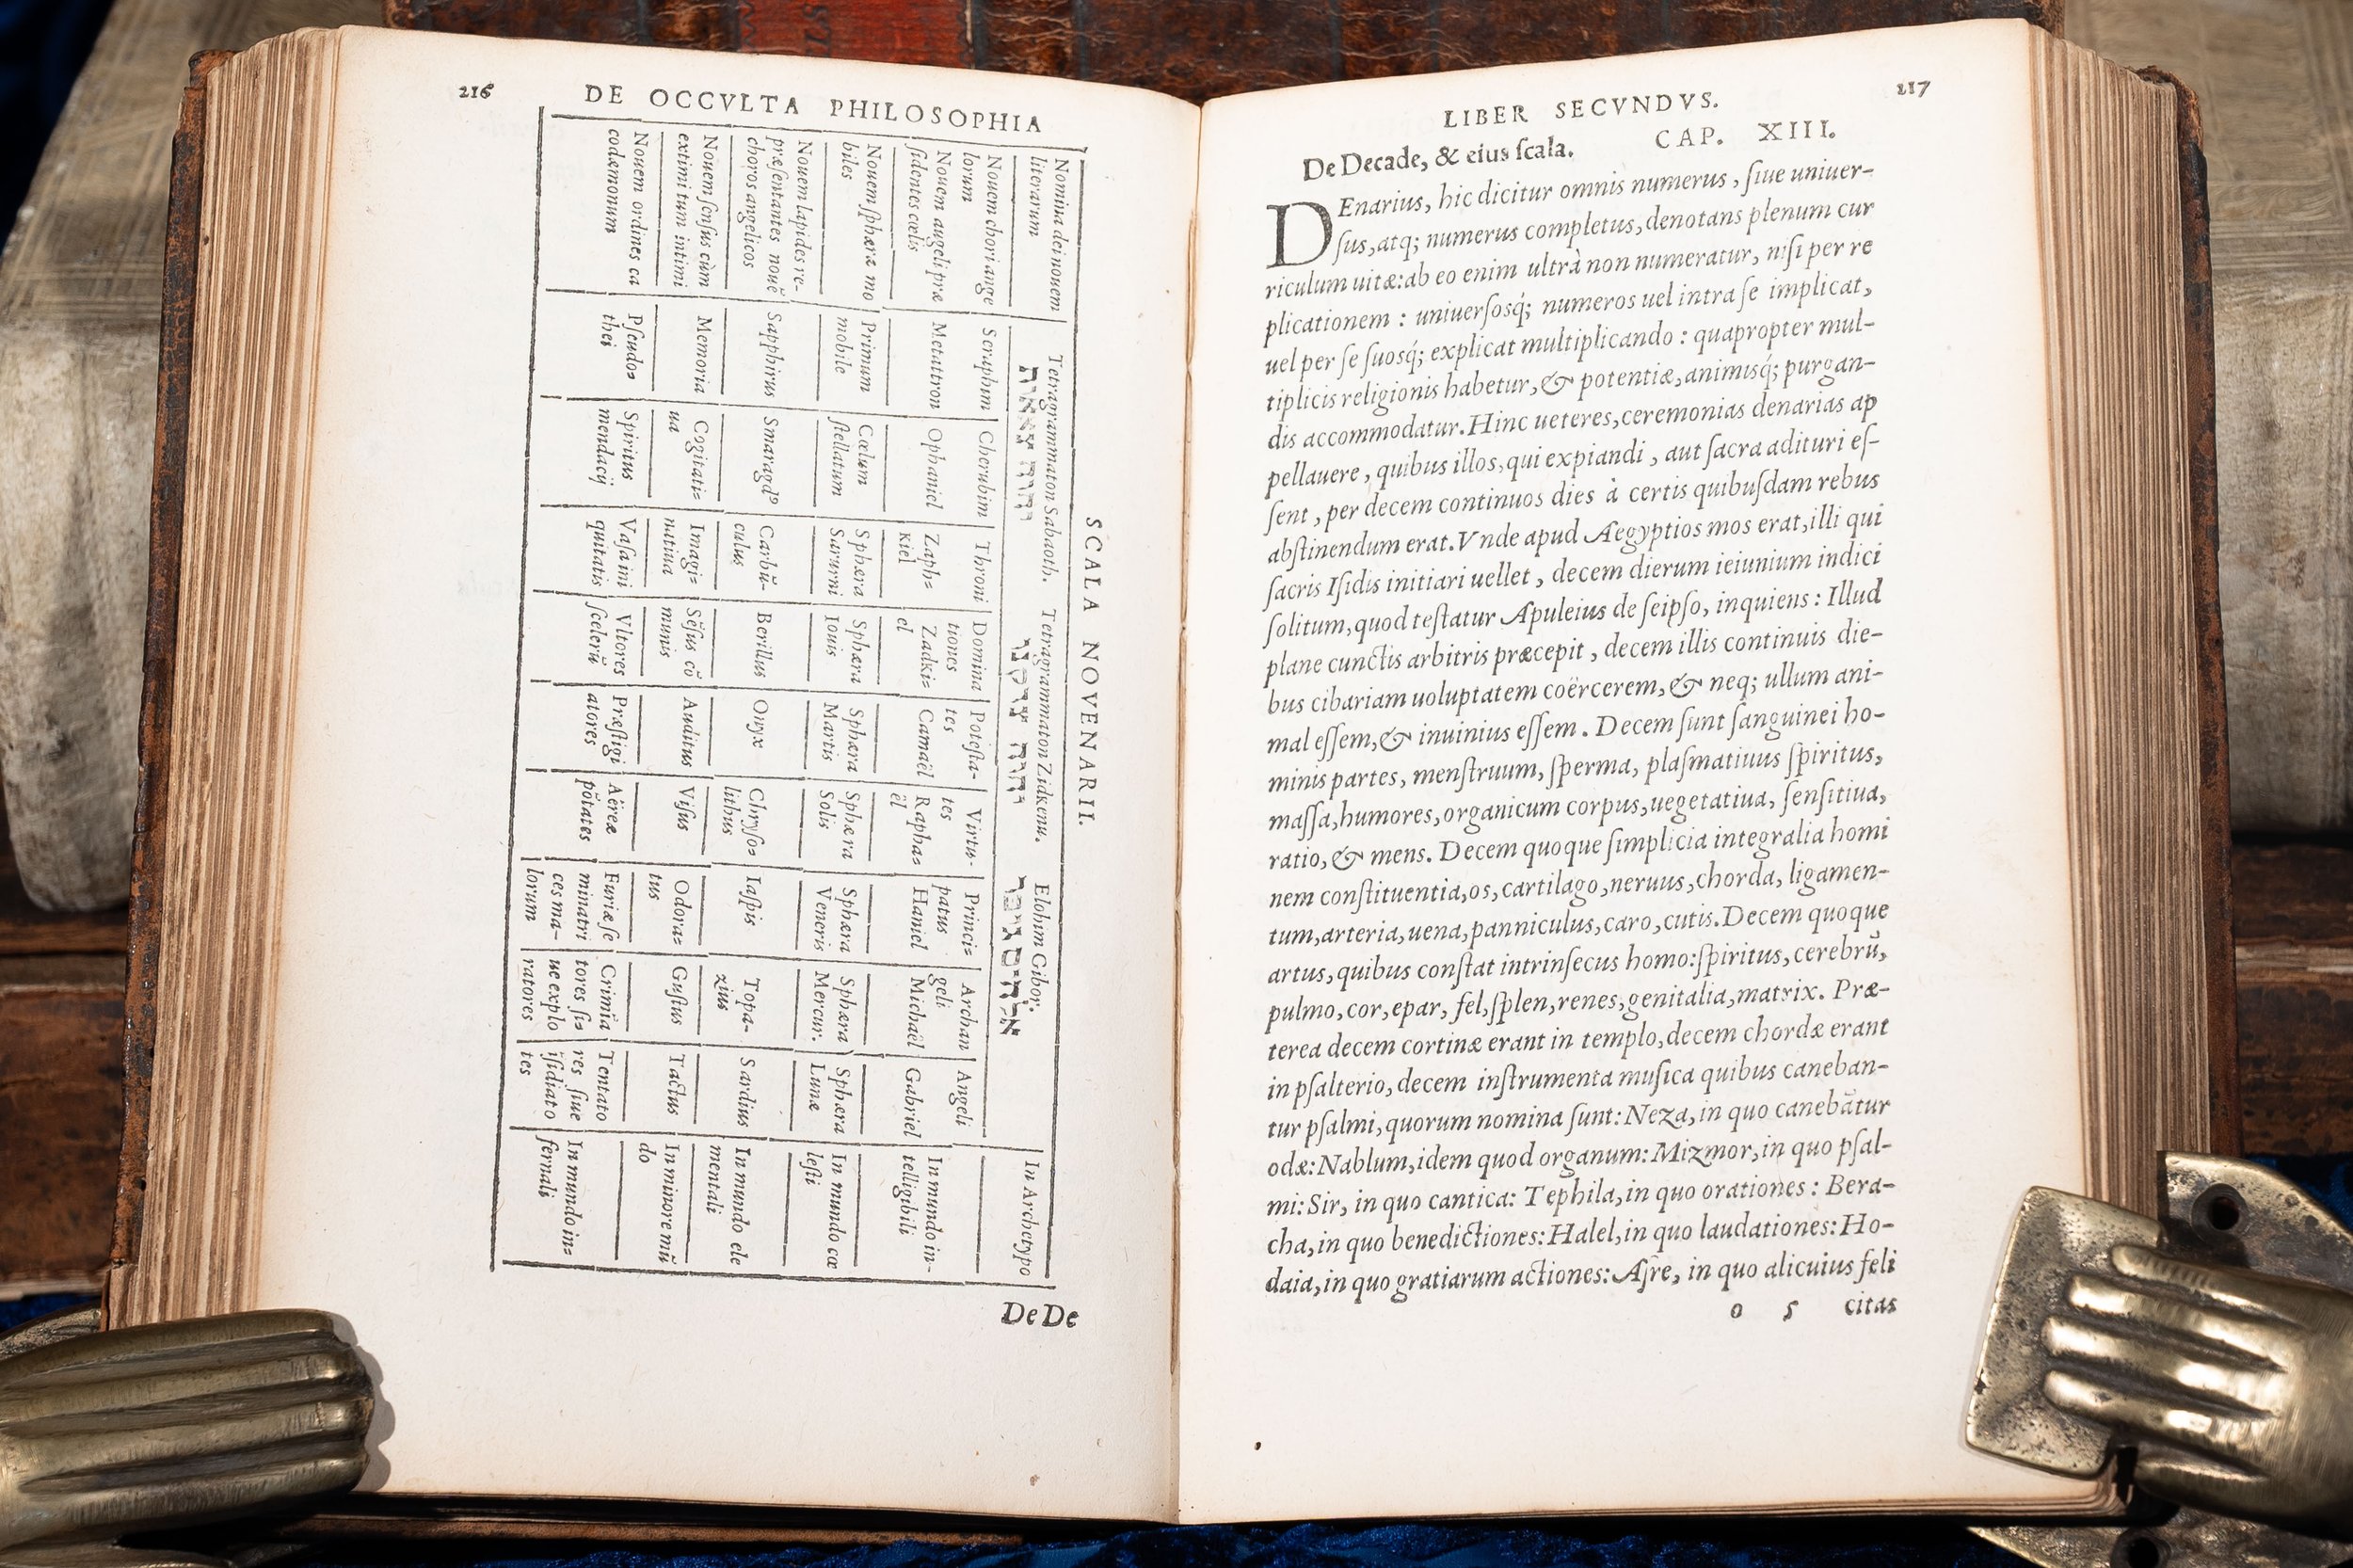 216 DE OCCVLTA PHILOSOPHIA
SCALA NOVENARII.
Nomina dei nouem literarum
Tetragrammaton Sabaoth. Tetragrammaton Zidkenu. Elohim Gibor.
יהוה צבאות יהוה צדקנו אלהים גיבר
In Archetypo
Nouem chori ange
lorum
Seraphim
Cherubim
Throni
Domina
tiones
Potesta-
tes
Virtu-
tes
Princi=
patus
Archan
geli
Angeli
Nouem angeli præ
sidentes cælis
Metattron
Ophaniel
Zaph=
kiel
Zadki=
el
Camaël
Rapha=
ël
Haniel
Michaël
Gabriel
In mundo in-
telligibili
Nouem sphæræ mo
biles
Primum
mobile
Cœlum
stellatum
Sphæra
Saturni
Sphæra
Iouis
Sphæra
Martis
Sphæra
Solis
Sphæra
Veneris
Sphæra
Mercur.
Sphæra
Lunæ
In mundo cœ
lesti
Nouem lapides re-
præsentantes nouē
choros angelicos
Sapphirus
Smaragdꝰ
Carbū-
culus
Berillus
Onyx
Chryso=
lithus
Iaspis
Topa-
zius
Sardius
In mundo ele
mentali
Nouem sensus cùm
extimi tum intimi
Memoria
Cogitati=
ua
Imagi=
natiua
Sēsus cō
munis
Auditus
Visus
Odora=
tus
Gustus
Tactus
In minore mū
do
Nouem ordines ca
codæmonum
Pseudo=
thei
Spiritus
mendacij
Vasa ini
quitatis
Vltores
scelerū
Præstigi
atores
Aëreæ
pōtates
Furiæ se
minatri
ces ma-
lorum
Crimīa
tores si=
ue explo
ratores
Tentato
res siue
īsidiato
tes
In mundo in=
fernali
DeDe
LIBER SECVNDVS. 217
De Decade, & eius scala. CAP. XIII.
DEnarius, hic dicitur omnis numerus, siue uniuer-
sus, atq; numerus completus, denotans plenum cur
riculum uitæ: ab eo enim ultrà non numeratur, nisi per re
plicationem : uniuersosq́; numeros uel intra se implicat,
uel per se suosq́; explicat multiplicando : quapropter mul-
tiplicis religionis habetur, & potentiæ, animisq́; purgan-
dis accommodatur. Hinc ueteres, ceremonias denarias ap
pellauere, quibus illos, qui expiandi, aut sacra adituri es-
sent, per decem continuos dies à certis quibusdam rebus
abstinendum erat. Vnde apud Aegyptios mos erat, illi qui
sacris Isidis initiari uellet, decem dierum ieiunium indici
solitum, quod testatur Apuleius de seipso, inquiens : Illud
plane cunctis arbitris præcepit, decem illis continuis die-
bus cibariam uoluptatem coërcerem, & neq; ullum ani-
mal essem, & inuinius essem. Decem sunt sanguinei ho-
minis partes, menstruum, sperma, plasmatiuus spiritus,
massa, humores, organicum corpus, uegetatiua, sensitiua,
ratio, & mens. Decem quoque simplicia integralia homi
nem constituentia, os, cartilago, neruus, chorda, ligamen-
tum, arteria, uena, panniculus, caro, cutis. Decem quoque
artus, quibus constat intrinsecus homo: spiritus, cerebrū,
pulmo, cor, epar, fel, splen, renes, genitalia, matrix. Præ-
terea decem cortinæ erant in templo, decem chordæ erant
in psalterio, decem instrumenta musica quibus caneban-
tur psalmi, quorum nomina sunt: Neza, in quo canebātur
odæ: Nablum, idem quod organum: Mizmor, in quo psal-
mi: Sir, in quo cantica: Tephila, in quo orationes : Bera-
cha, in quo benedictiones: Halel, in quo laudationes: Ho-
daia, in quo gratiarum actiones: Asre, in quo alicuius feli
o 5 citas